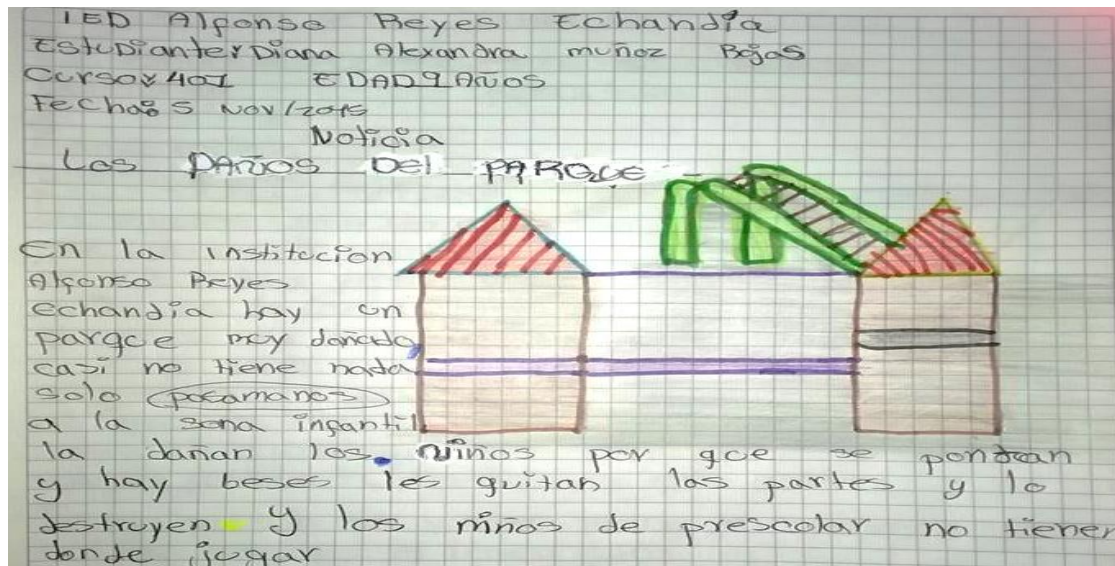 IED Alfonso Reyes Echandía
Estudiante: Diana Alexandra muñoz Rojas
Curso: 401 EDAD 9 AÑOS
Fecha: 5 Nov/2015
Noticia
Los DAÑOS Del PARQUE
En la institucion
Alfonso Reyes
echandía hay un
parque muy dañado,
casi no tiene nada
solo pasamanos
a la sona infantil
la dañan los niños por que se
y hay beses les quitan las partes y lo
destruyen y los niños de prescolar no tienen
donde jugar